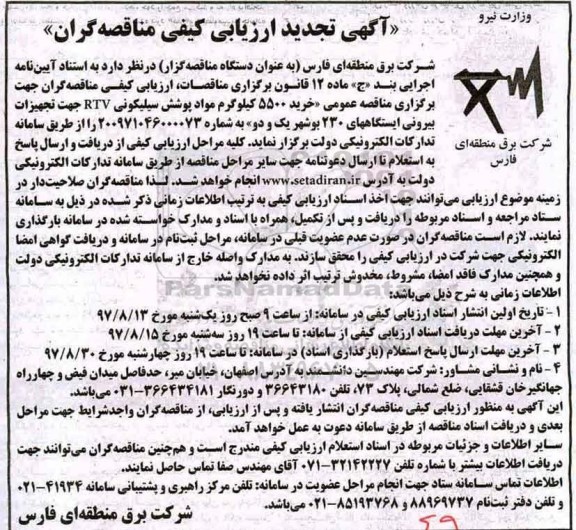 وزارت نیرو
«آگهی تجدید ارزیابی کیفی مناقصه‌گران»
شرکت برق منطقه‌ای فارس
شرکت برق منطقه‌ای فارس (به عنوان دستگاه مناقصه‌گزار) درنظر دارد به استناد آیین‌نامه
اجرایی بند «ج» ماده ۱۲ قانون برگزاری مناقصات، ارزیابی کیفی مناقصه‌گران جهت
برگزاری مناقصه عمومی «خرید ۵۵۰۰ کیلوگرم مواد پوشش سیلیکونی RTV جهت تجهیزات
بیرونی ایستگاههای ۲۳۰ بوشهر یک و دو» به شماره ۲۰۰۹۷۱۰۴۶۰۰۰۰۷۳ را از طریق سامانه
تدارکات الکترونیکی دولت برگزار نماید. کلیه مراحل ارزیابی کیفی از دریافت و ارسال پاسخ
به استعلام تا ارسال دعوتنامه جهت سایر مراحل مناقصه از طریق سامانه تدارکات الکترونیکی
دولت به آدرس www.setadiran.ir انجام خواهد شد. لذا مناقصه‌گران صلاحیت‌دار در
زمینه موضوع ارزیابی می‌توانند جهت اخذ اسناد ارزیابی کیفی به ترتیب اطلاعات زمانی ذکر شده در ذیل به سامانه
ستاد مراجعه و اسناد مربوطه را دریافت و پس از تکمیل، همراه با اسناد و مدارک خواسته شده در سامانه بارگذاری
نمایند. لازم است مناقصه‌گران در صورت عدم عضویت قبلی در سامانه، مراحل ثبت‌نام در سامانه و دریافت گواهی امضا
الکترونیکی جهت شرکت در ارزیابی کیفی را محقق سازند. به مدارک واصله خارج از سامانه تدارکات الکترونیکی دولت
و همچنین مدارک فاقد امضا، مشروط، مخدوش ترتیب اثر داده نخواهد شد.
ParsNamadData
اطلاعات زمانی به شرح ذیل می‌باشد:
۱- تاریخ اولین انتشار اسناد ارزیابی کیفی در سامانه: از ساعت ۹ صبح روز یک‌شنبه مورخ ۹۷/۸/۱۳
۲- آخرین مهلت دریافت اسناد ارزیابی کیفی از سامانه: تا ساعت ۱۹ روز سه‌شنبه مورخ ۹۷/۸/۱۵
۳- آخرین مهلت ارسال پاسخ استعلام (بارگذاری اسناد) در سامانه: تا ساعت ۱۹ روز چهارشنبه مورخ ۹۷/۸/۳۰
۴- نام و نشانی مشاور: شرکت مهندسین دانشمند به آدرس اصفهان، خیابان میر، حدفاصل میدان فیض و چهارراه
جهانگیرخان قشقایی، ضلع شمالی، پلاک ۷۳، تلفن ۳۶۶۴۳۱۸۰ و دورنگار ۳۶۶۴۳۴۱۸۱-۰۳۱ می‌باشد.
این آگهی به منظور ارزیابی کیفی مناقصه‌گران انتشار یافته و پس از ارزیابی، از مناقصه‌گران واجدشرایط جهت مراحل
بعدی و دریافت اسناد مناقصه از طریق سامانه دعوت به عمل خواهد آمد.
سایر اطلاعات و جزئیات مربوطه در اسناد استعلام ارزیابی کیفی مندرج است و هم‌چنین مناقصه‌گران می‌توانند جهت
دریافت اطلاعات بیشتر با شماره تلفن ۳۲۱۴۲۲۲۷-۰۷۱ آقای مهندس صفا تماس حاصل نمایند.
اطلاعات تماس سامانه ستاد جهت انجام مراحل عضویت در سامانه: تلفن مرکز راهبری و پشتیبانی سامانه ۴۱۹۳۴-۰۲۱
و تلفن دفتر ثبت‌نام ۸۸۹۶۹۷۳۷ و ۸۵۱۹۳۷۶۸-۰۲۱ می‌باشد.
شرکت برق منطقه‌ای فارس